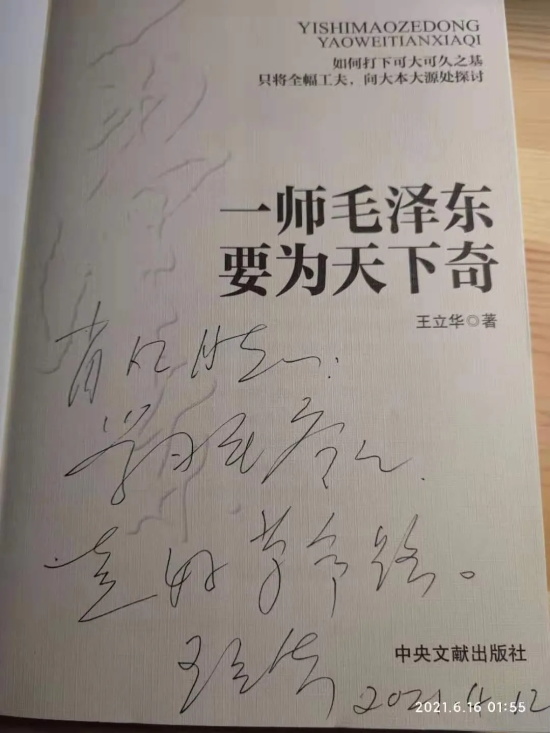 YISHIMAOZEDONG
YAOWEITIANXIAQI
如何打下可大可久之基
只将全幅工夫，向大本大源处探讨
一师毛泽东
要为天下奇
王立华◎著
走好革命路。
王立华
2021.4.12
中央文献出版社
2021.6.16 01:55